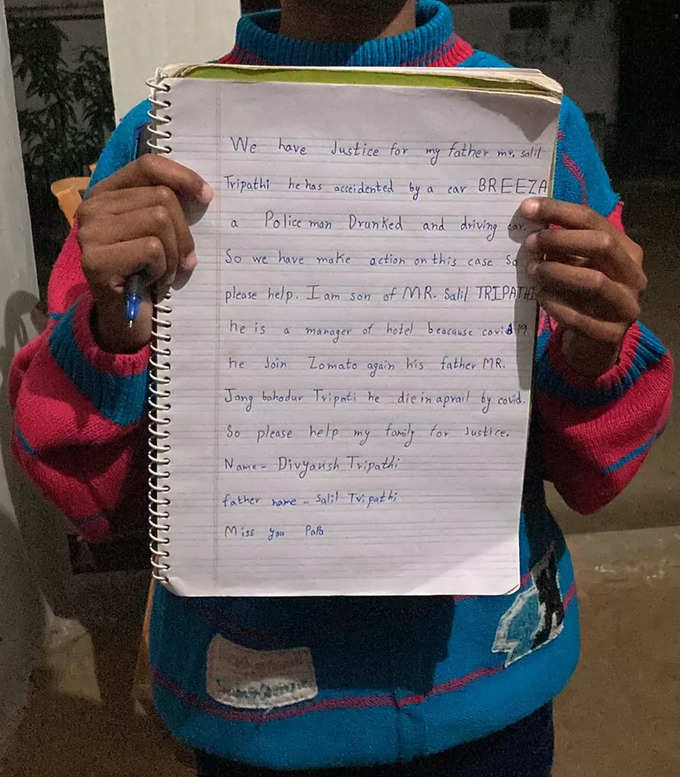 We have Justice for my father mr. salil
Tripathi he has accidented by a car BREEZA
a Police man Drunked and driving car.
So we have make action on this case So
please help. I am son of MR. Salil TRIPATHI
he is a manager of hotel beacause covid 19
he Join Zomato again his father MR.
Jang bahadur Tripati he die in aprail by covid.
So please help my family for Justice.
Name - Divyansh Tripathi
father name - Salil Tripathi
Miss you Papa